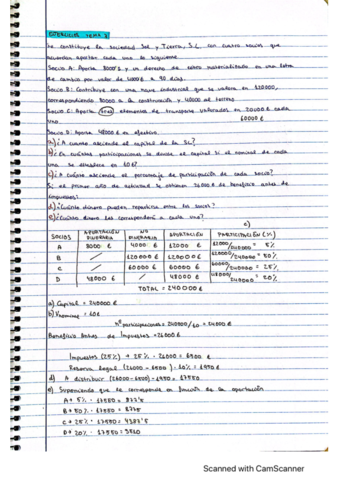 EJERCICIOS TEMA 3
Se constituye la sociedad Sol y Tierra, S.C. con cuatro socios que
acuerdan aportar cada uno lo siguiente
Socio A: Aporta 8000 $ y un derecho de cobro materializado en una letra
de cambio por valor de 4000 a 90 días.
Socio B: Contribuye con una nave industrial que se valora en 120000,
correspondiendo 80000 a la construcción y 40000 al terreno
Socio C: Aporta tres elementos de transporte valorados en 20000 € cada
uno. 60000 €
Socio D: Aporta 48000 € en efectivo
a) ¿A cuanto asciende el capital de la SC?
b) En cuántas participaciones la divide el capital si el nominal de cada
una se
c) ¿A cuánto asciende el porcentaje de participación de cada socio?
Si el primer año de actividad se obtienen 26000 € de beneficio antes de
impuestos:
d) ¿Cuánto dinero pueden repartirse entre los socios?
e) ¿Cuánto dinero les correspondería a cada uno?
c)
SOCIOS APORTACIÓN DINERARIA NO DINERARIA APORTACIÓN PARTICIPACIÓN (%)
A 8000 € 4000 € 12000 € 12000/240000 = 5%
B / 120000 € 120000 € 120000/240000 = 50%
C / 60000 € 60000 € 60000/240000 = 25%
D 48000 € / 48000 € 48000/240000 = 20%
TOTAL = 240000 €
a) Capital = 240000 €
b) Vnominal = 10 €
nº participaciones = 240000/10 = 24000 €
Beneficio Antes de Impuestos = 26000 €
Impuestos (25%) → 25% · 26000 = 6500 €
Reserva Legal (26000 - 6500) · 10% = 1950 €
d) A distribuir (26000 - 6500) - 1950 = 17550
e) Suponiendo que le corresponde en función de la aportación
A → 5% · 17550 = 877'5
B → 50% · 17550 = 8775
C → 25% · 17550 = 4387'5
D → 20% · 17550 = 3510
Scanned with CamScanner